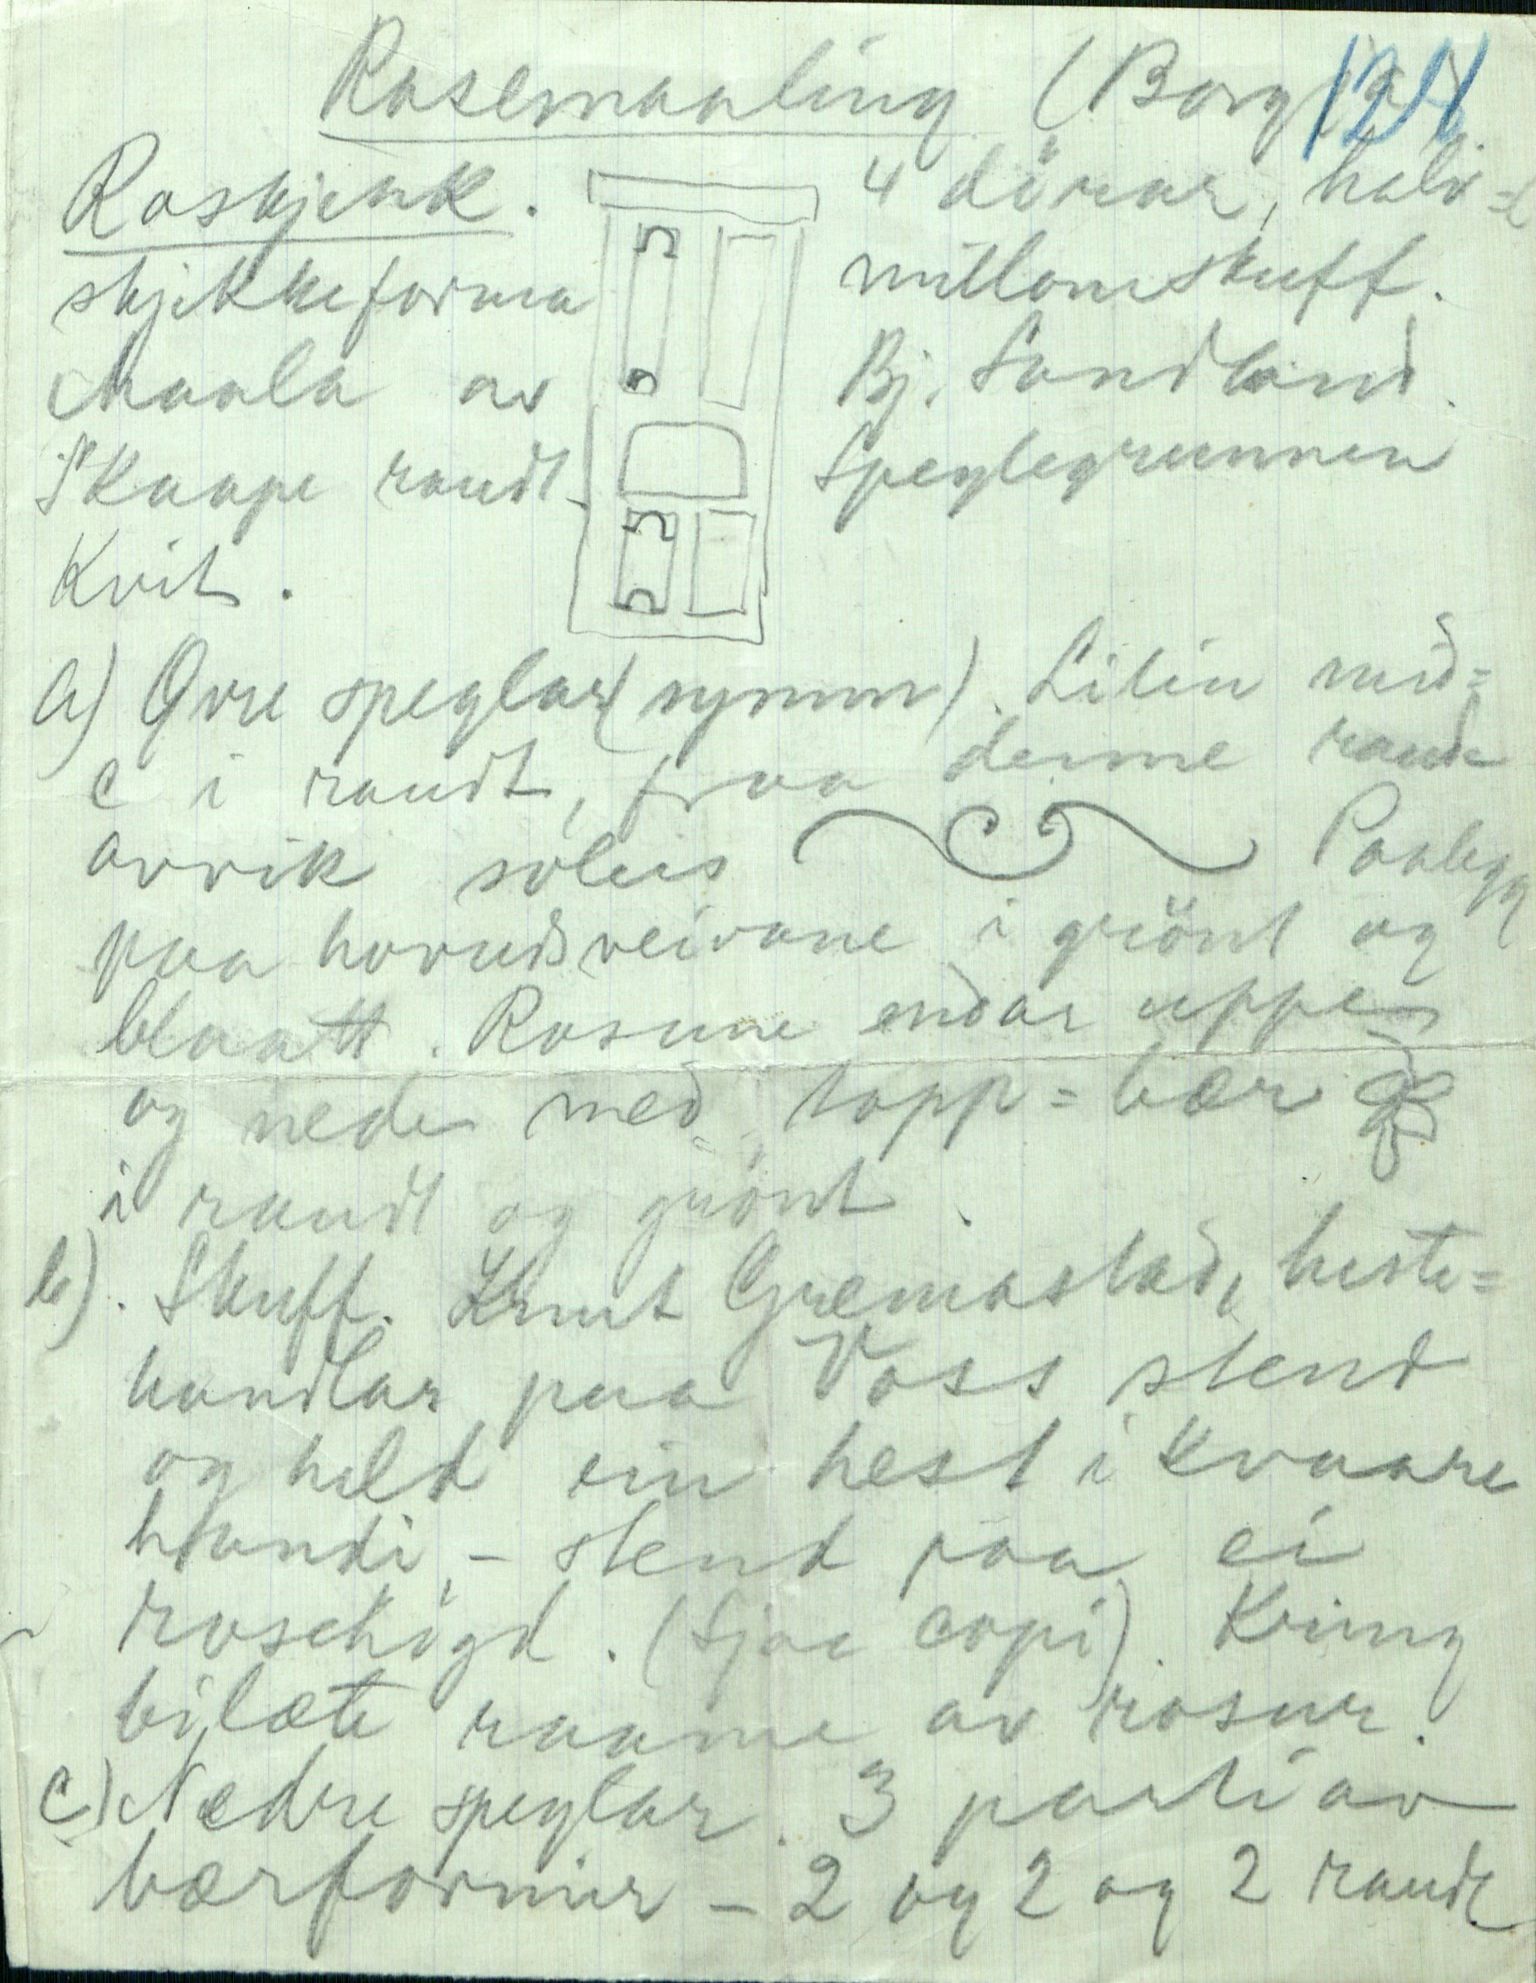 Rosemaaling (Borg 124
Roskjenk. 4 dörar, halv=
skjikkeforma millomskuff.
Maala av Bj. Sandland.
Skaape raudt. Speglegrunnen
kvit.
a) Øvre speglar (symm). Lilin mid=
c i raudt, fraa denne raude
avvik soleis Paalegg
paa hovudsveivane i grönt og
blaatt. Rosune endar uppe
og nede med topp=bær
i raudt og grönt.
b). Skuff. Knut Gremastad, heste=
handlar paa Voss stend
og held ein hest i kvaare
haandi, – stend paa ei
rosehögd. (Sjaa copi). Kring
bilæte raame av rosur.
c) Nedre speglar. 3 parti av
bærformer – 2 og 2 og 2 raude